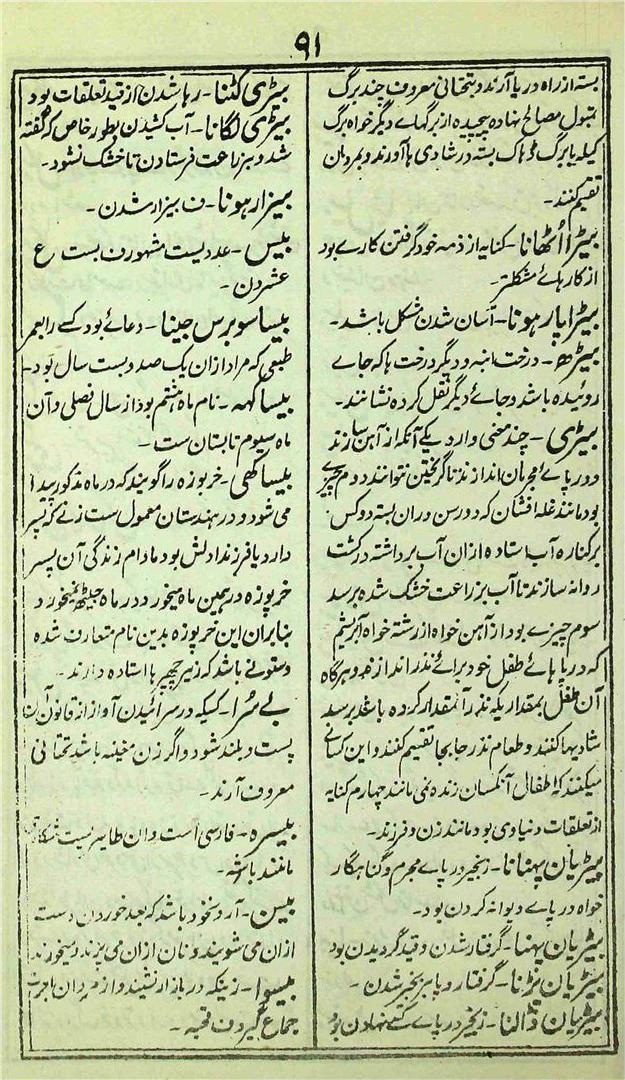 ۹۱
بسته از راه دریا آرند و بتحتانی معروف چند برگ
تنبول مصالح نهاده پیچیده از برگهاے دیگر خواه برگ
کیله یا برگ ڈھاک بسته در شادی ها آورند و بمردمان
تقسیم کنند۔
بیڑا اُٹھانا۔ کنایه از ذمه خود گرفتن کارے بود
از کارهاے مشکلتر۔
بیڑا پار ہونا۔ آسان شدن مشکل باشد۔
بیڑھ۔ درخت انبه و دیگر درخت ها که جاے
روئیده باشد و جاے دیگر نقل کرده نشانند۔
بیڑی۔ چند معنی دارد یکے آنکه از آهن سازند
و در پاے مجرمان اندازند تا گریختن نتوانند دوم چیزے
بود مانند غله افشان که دو رسن دران بسته دو کس
بر کناره آب استاده ازان آب برداشته در کشت
روانه سازند تا آب بزراعت خشک شده برسد
سوم چیزے بود از آهن خواه از رشته خواه ابریشم
که در پاهاے طفل خود براے نذر اندازند و هرگاه
آن طفل بمقداریکه نذر آنمقدار کرده باشد برسد
شادیها کنند و طعام نذر جابجا تقسیم کنند و این کسانے
میکنند که اطفال آنکسان زنده نمی مانند چهارم کنایه
از تعلقات دنیاوی بود مانند زن و فرزند۔
بیڑیاں پہنانا۔ زنجیر در پاے مجرم و گناهگار
خواه در پاے دیوانه کردن بود۔
بیڑیاں پہننا۔ گرفتار شدن و قید گردیدن بود
بیڑیاں پڑنا۔ گرفتار و پا بزنجیر شدن۔
بیڑیاں ڈالنا۔ زنجیر در پاے کسے نهادن بود
بیڑی کٹنا۔ رها شدن از قید تعلقات بود
بیڑی لگانا۔ آب کشیدن بطور خاص که گفته
شد و بزراعت فرستادن تا خشک نشود۔
بیزار ہونا۔ ف بیزار شدن۔
بیس۔ عددیست مشهور ف بست ع
عشرون۔
بیسا سو برس جینا۔ دعاے بود کسے را بعمر
طبعی که مراد ازان یک صد و بست سال بود۔
بیساکھ۔ نام ماه هشتم بود از سال فصلی و آن
ماه سیوم تابستان ست۔
بیساکھی۔ خربوزه را گویند که در ماه مذکور پیدا
می شود و در هندستان معمول ست زنے که پسر
دارد یا فرزند ادلش بود مادام زندگی آن پسر
خرپوزه در همین ماه میخورد در ماه جیٹھ نمیخورد
بنابران این خرپوزه بدین نام متعارف شده
و ستونے باشد که زیر چھپرها استاده دارند۔
بے سُرا۔ کسیکه در سرائیدن آواز از قانون آن
پست و بلند شود و اگر زن مغنیه باشد تحتانی
معروف آرند۔
بیسره۔ فارسی است و آن طائریست شکاری
مانند باشه۔
بیسن۔ آرد نخود باشد که بعد خوردن دست
ازان می شویند و نان ازان می پزند و میخورند
بیسوا۔ زنیکه در بازار نشیند و از مردان اجرت
جماع گیرد ف قحبه۔